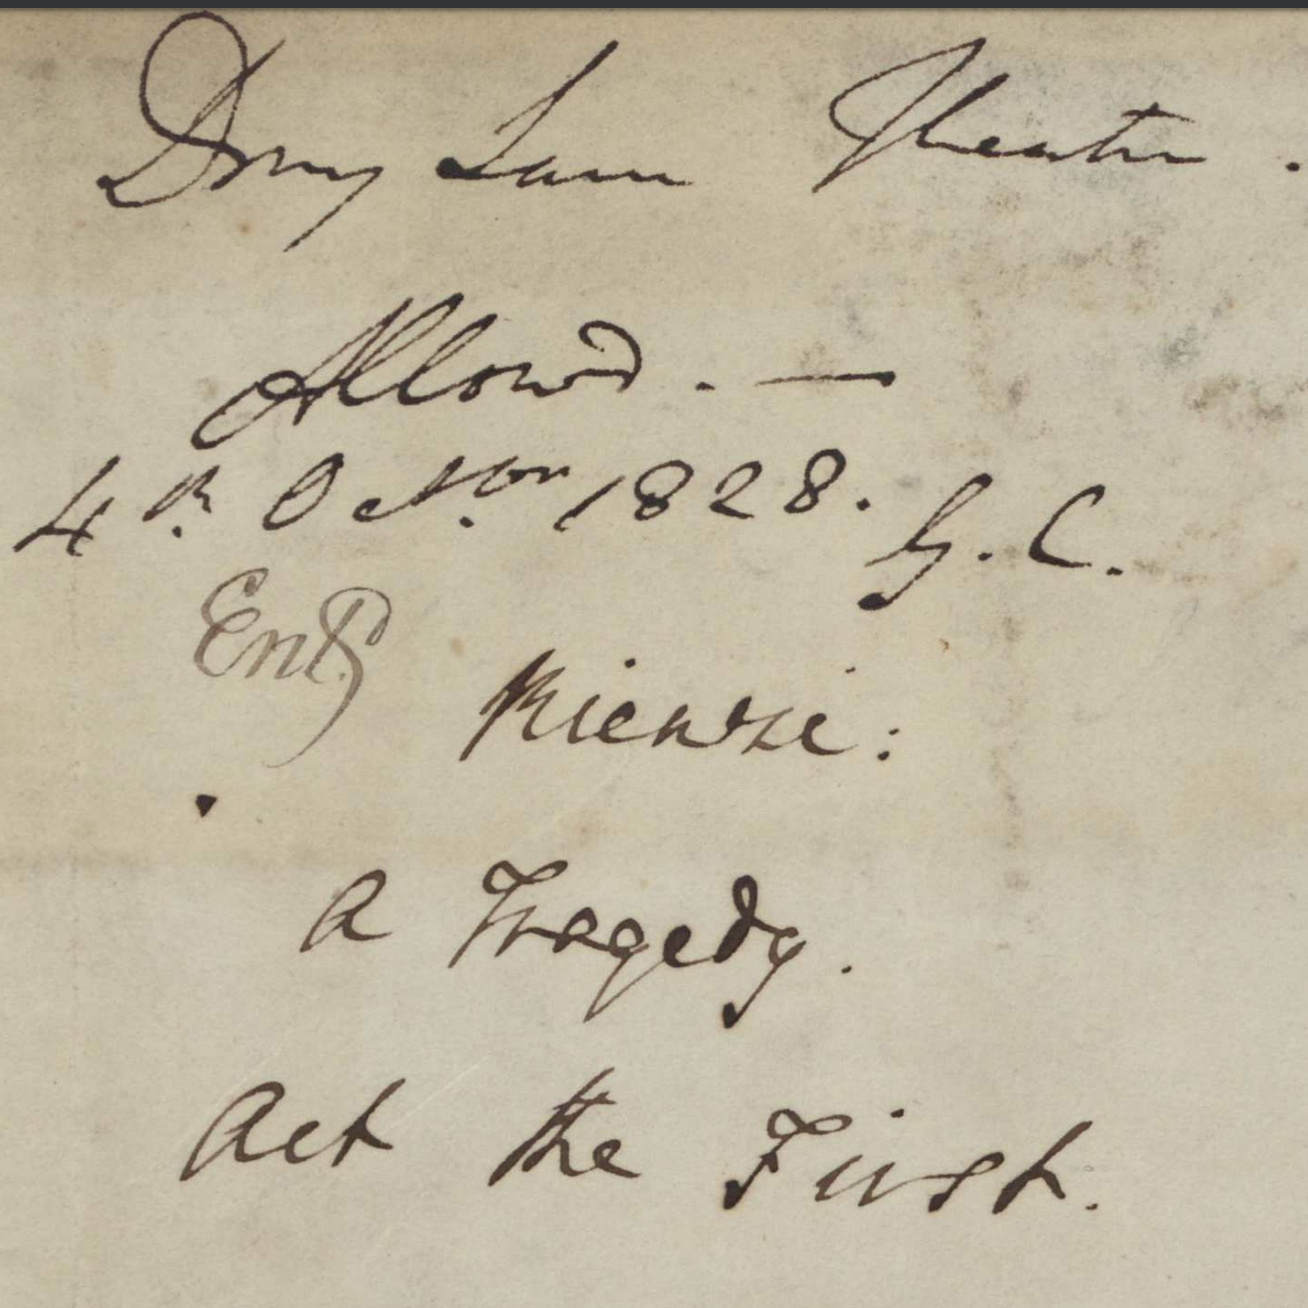 Drury Lane Theatre.
Allowd. —
4th. Octobr. 1828. G. C.
Entd
Rienzi:
a Tragedy.
Act the First.